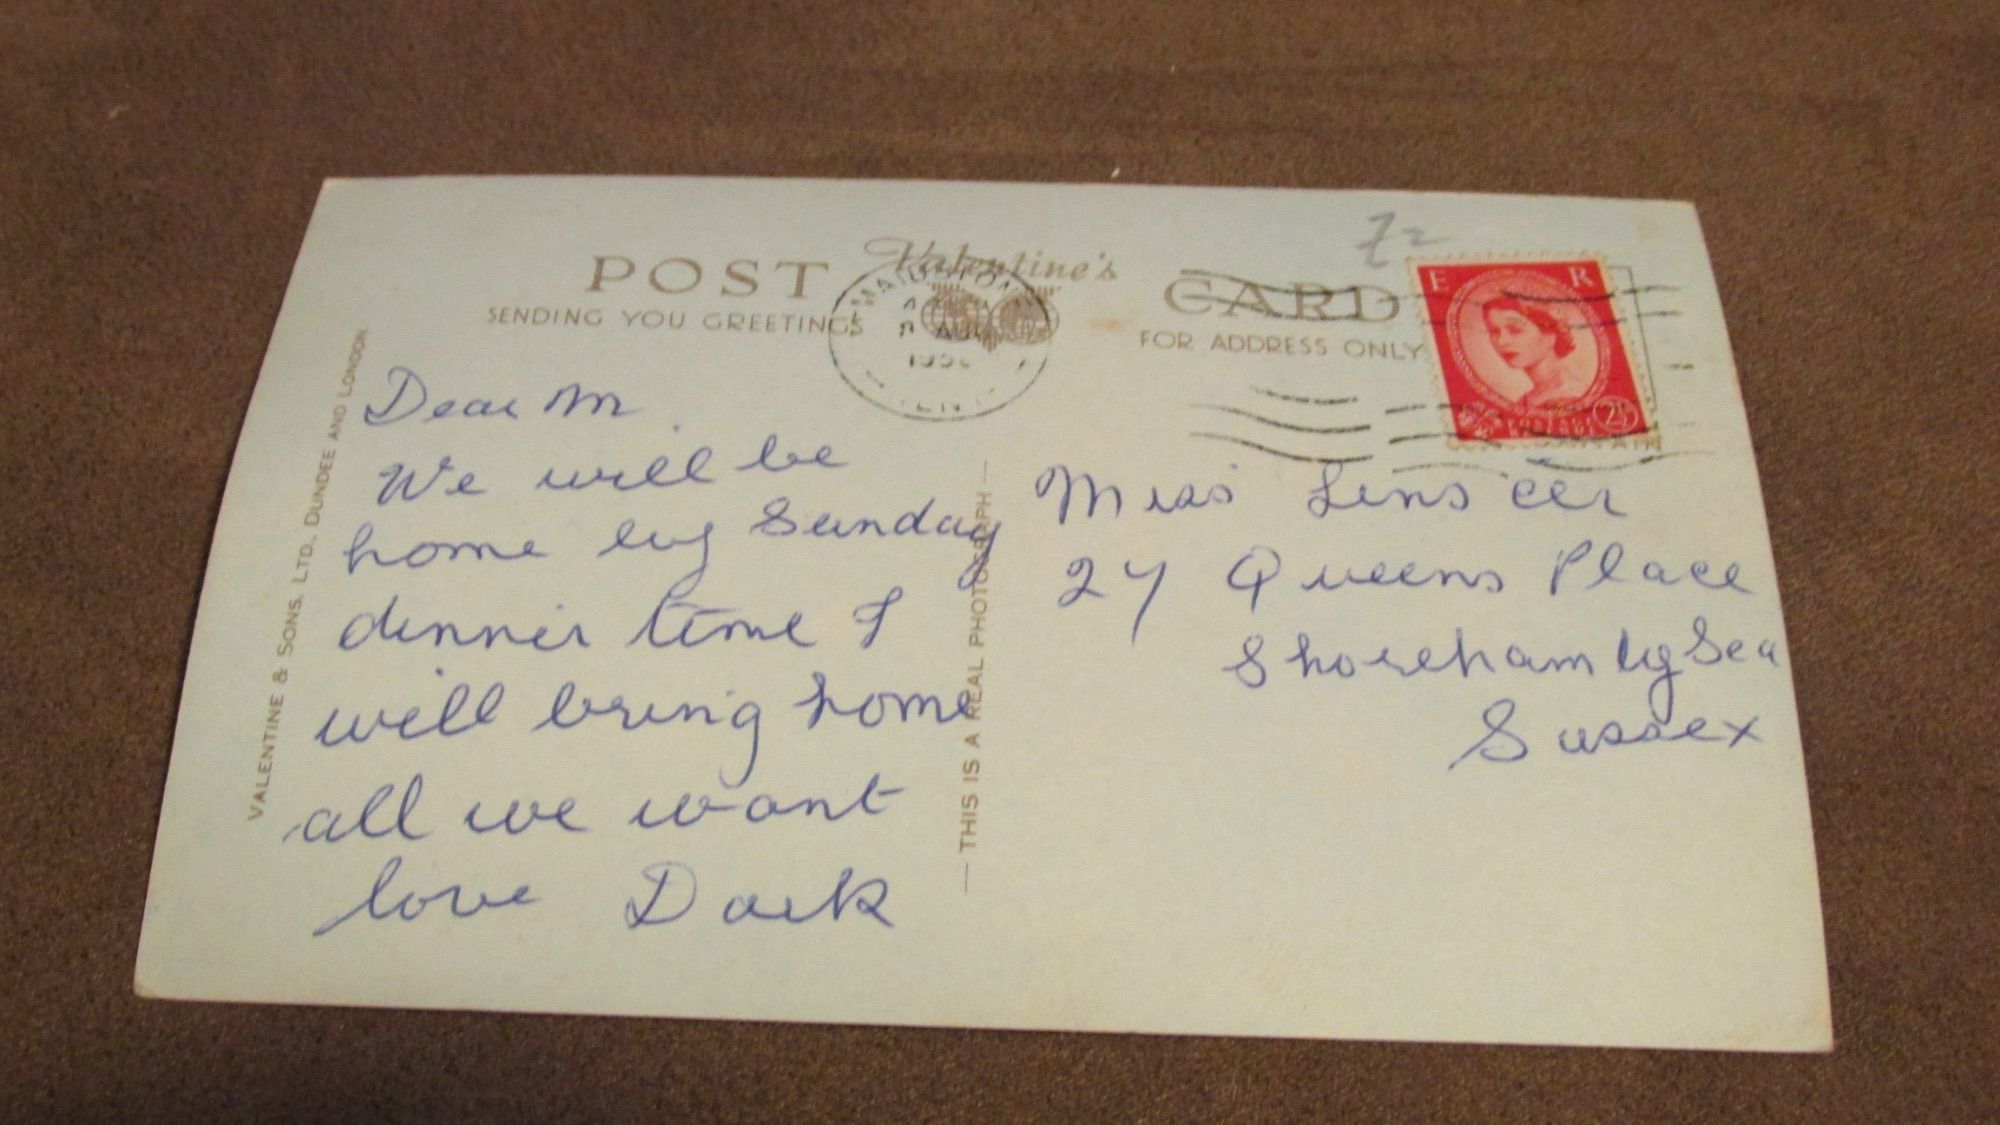 POST
Valentine's
CARD
SENDING YOU GREETINGS
FOR ADDRESS ONLY
E R
POSTAGE
2½
MAIDSTONE
AUG
KENT
VALENTINE & SONS. LTD., DUNDEE AND LONDON
Dear M
We will be
home by Sunday
dinner time I
will bring home
all we want
love
— THIS IS A REAL PHOTOGRAPH —
Miss
27 Queens Place
Shoreham by Sea
Sussex